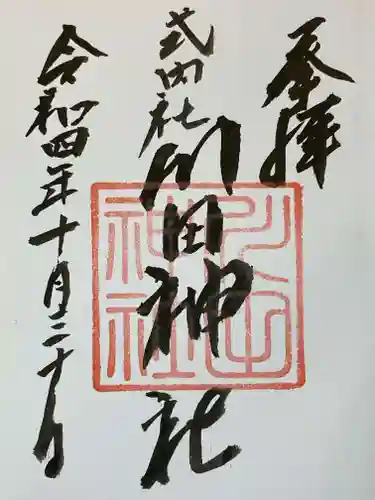 奉拝
式内社
川田神社
令和四年十月二十日
川田神社